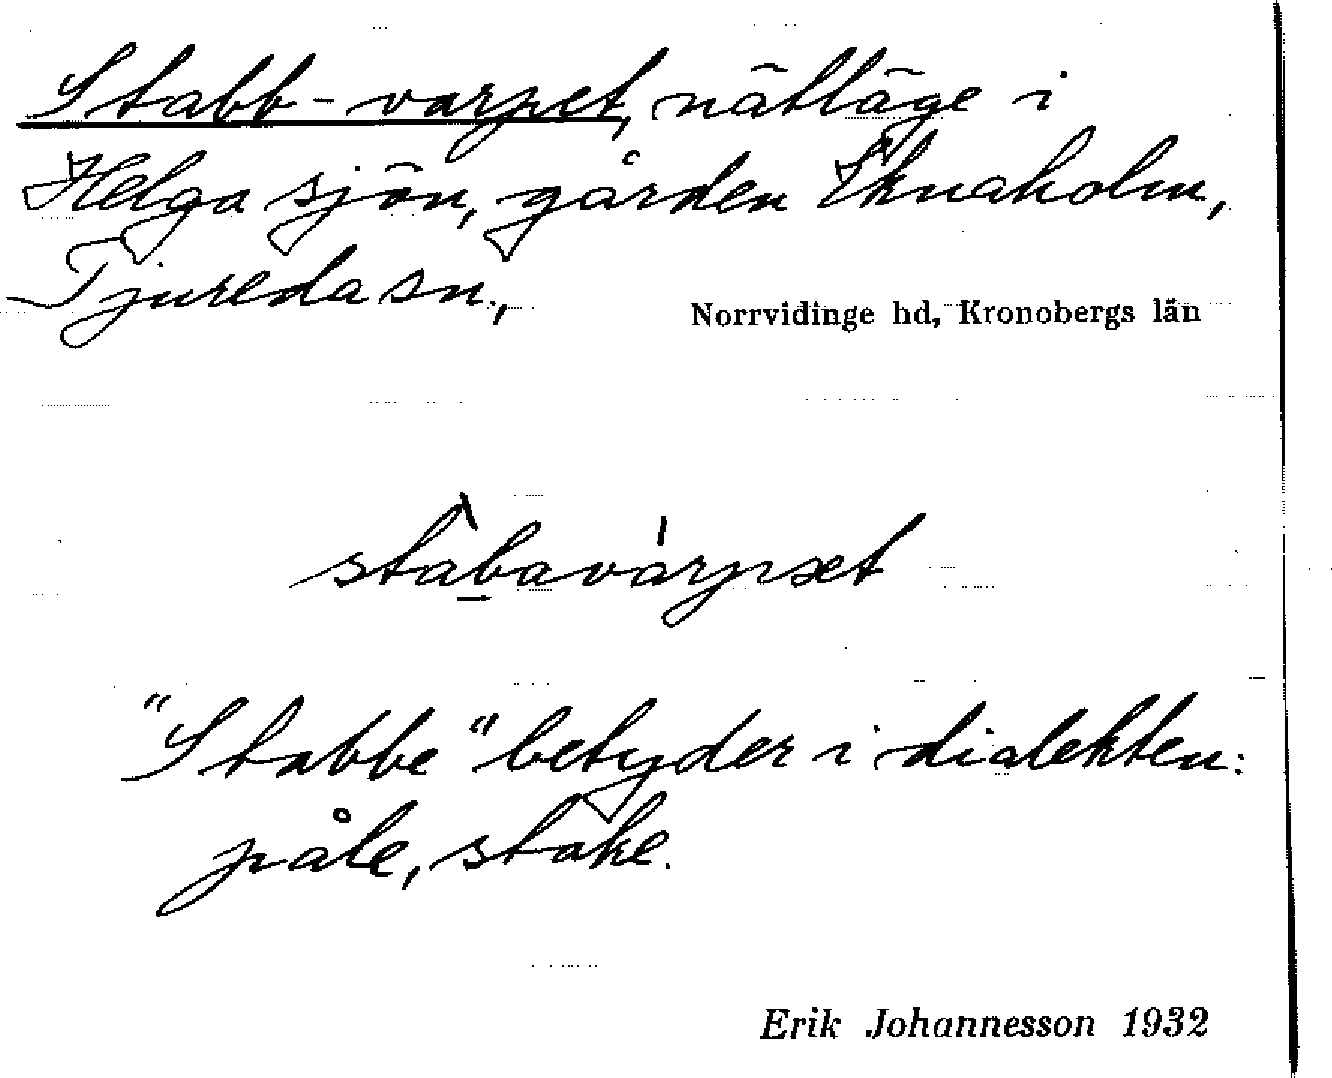 Stabb-varpet, nätläge i
Helga sjön, gården Eknaholm,
Tjureda sn.,
Norrvidinge hd, Kronobergs län
stàbavárpæt
"Stabbe" betyder i dialekten:
påle, stake.
Erik Johannesson 1932